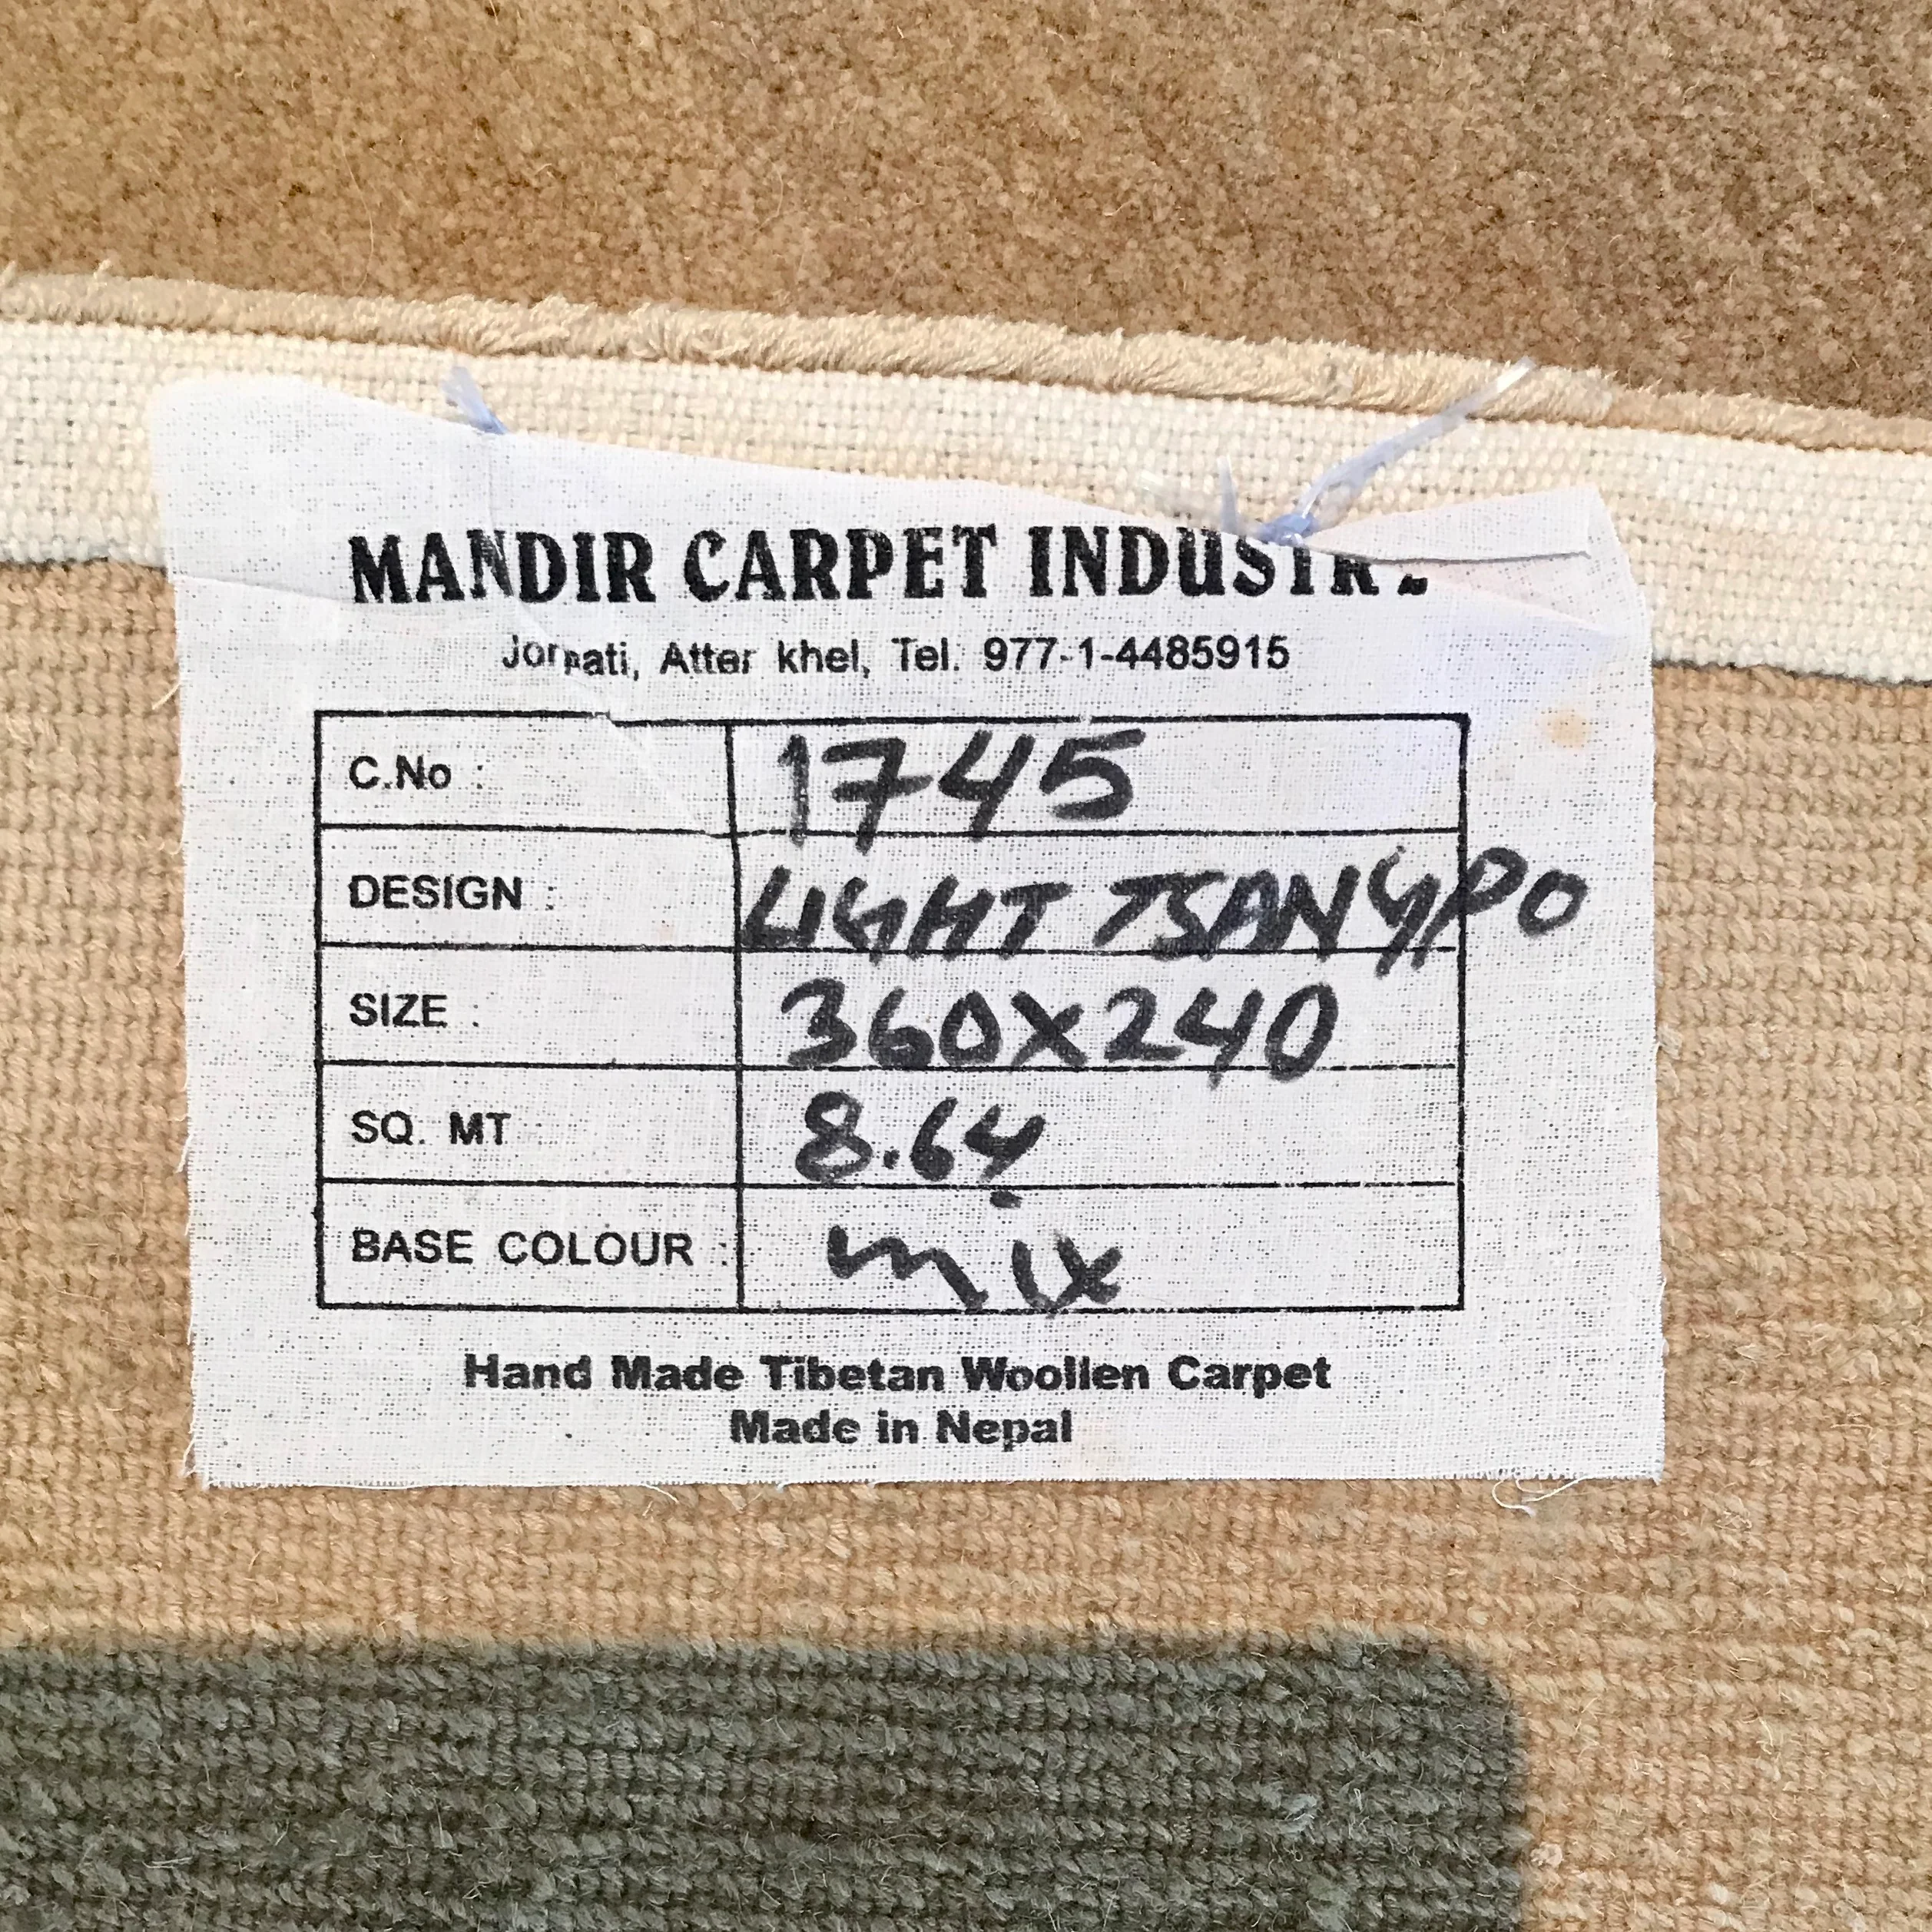 MANDIR CARPET INDUSTRY
Jorpati, Atter khel, Tel. 977-1-4485915
C.No : 1745
DESIGN : LIGHT TSANGPO
SIZE : 360X240
SQ. MT : 8.64
BASE COLOUR : mix
Hand Made Tibetan Woollen Carpet
Made in Nepal